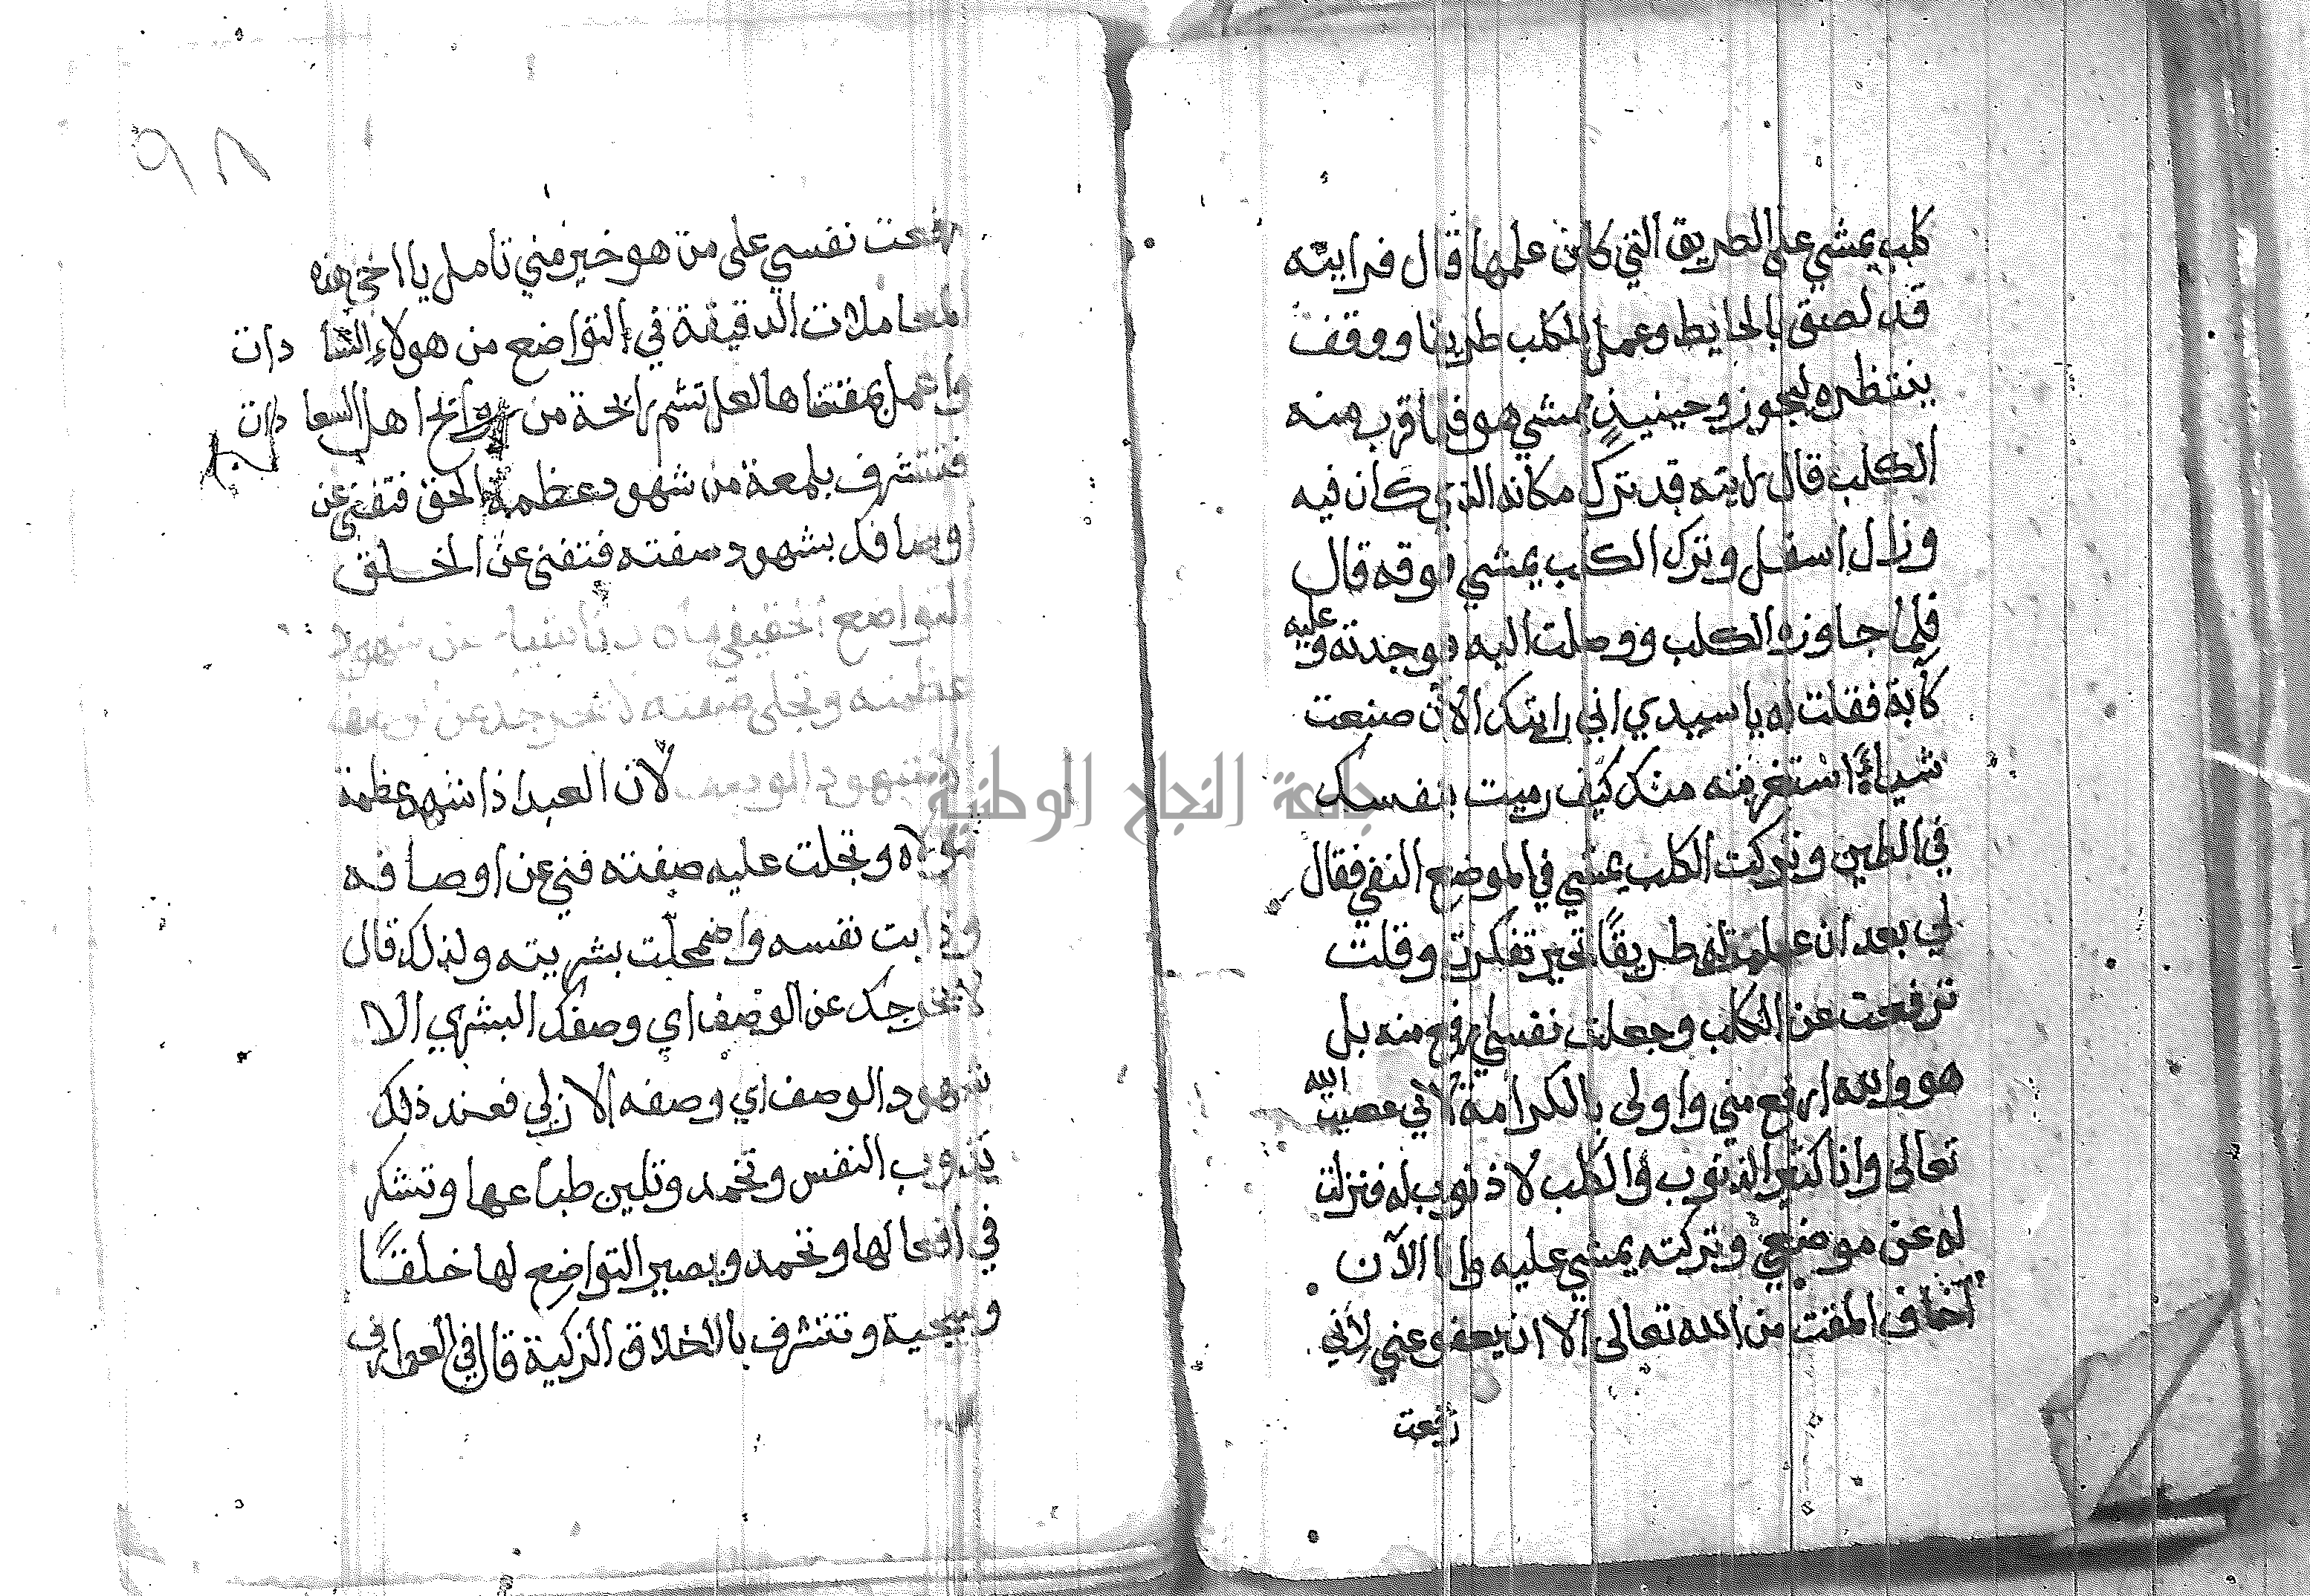 كلب يمشي على الطريق التي كان عليها قال فرايته
قد لصق بالحايط وعمل للكلب طريقا ووقف
ينتظره ليجوز وحينيذٍ يمشي هو فلما قرب منه
الكلب قال رايته قد ترك مكانه الذي كان فيه
ونزل اسفل وترك الكلب يمشي فوقه قال
فلما جاوزه الكلب ووصلت اليه فوجدته وعليه
كآبة فقلت له يا سيدي اني رايتك الآن صنعت
شياءً استغربته منك كيف رميت بنفسك
في الطين وتركت الكلب يمشي في الموضع النقي فقال
لي بعد ان عملت له طريقًا تفكرت وقلت
ترفعت عن الكلب وجعلت نفسي ارفع منه بل
هو والله ارفع مني واولى بالكرامة لاني عصيت الله
تعالى وانا كثير الذنوب والكلب لا ذنوب له فنزلت
له عن موضعي وتركته يمشي عليه وانا الآن
اخاف المقت من الله تعالى الا ان يعفو عني لأني
رفعت
٩٨
رفعت نفسي على من هو خير مني تامل يا اخي هذه
المعاملات الدقيقة في التواضع من هولاء السادات
واعمل بمقتضاها لعل تشم رائحة من روائح اهل السعادات
فتتشرف بلمعة من شهود عظمة الحق فتفنى عن
اوصافك بشهود صفته فتفنى عن الخلق
التواضع الحقيقي هو ما كان ناشيا عن شهود
عظمته وتجلي صفته لا يخرجك عن الوصف
الا شهود الوصف لان العبد اذا شهد عظمة
مولاه وتجلت عليه صفته فني عن اوصافه
وذابت نفسه واضمحلت بشريته ولذلك قال
لا يخرجك عن الوصف اي وصفك البشري الا
شهود الوصف اي وصفه الازلي فعند ذلك
تذوب النفس وتخمد وتلين طباعها وتشكر
في افعالها وتحمد ويصير التواضع لها خلقًا
وسجية وتتشرف بالاخلاق الزكية قال في العوارف
جامعة النجاح الوطنية